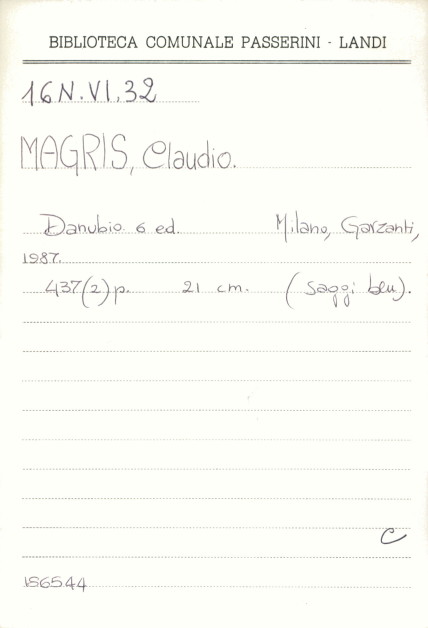 BIBLIOTECA COMUNALE PASSERINI - LANDI
16N.VI.32
MAGRIS, Claudio.
Danubio. 6 ed. Milano, Garzanti,
1987.
437(2)p. 21 cm. (Saggi blu).
C
186544